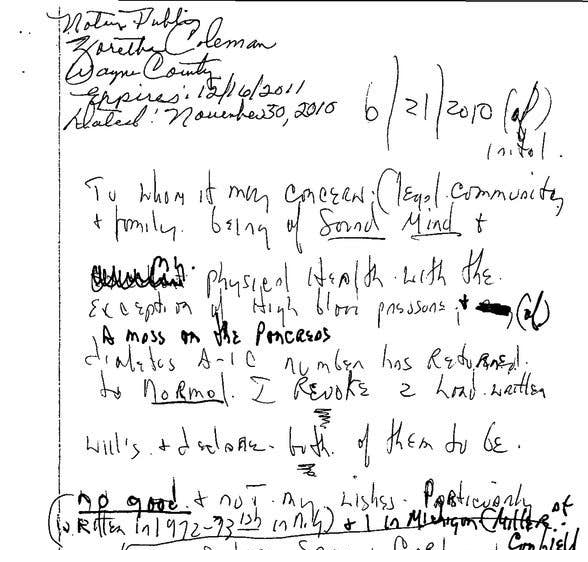 Notary Public
Zoretha Coleman
Wayne County
Expires: 12/16/2011
Dated: November 30, 2010
6/21/2010 (af)
Initol.
To Whom it may concern: (legal community
+ family. being of Sound Mind +
physical Health with the
exception of High blood pressure, + (af)
A mass on the Pancreas
diabetes A-1C number has Returned
to Normal. I REVOKE 2 hand written
will's + declare both of them to be
no good + not my wishes. Particularly
(written in 1972-73 1st in N.Y.) + 1 in Michigan (Miller at
Canfield